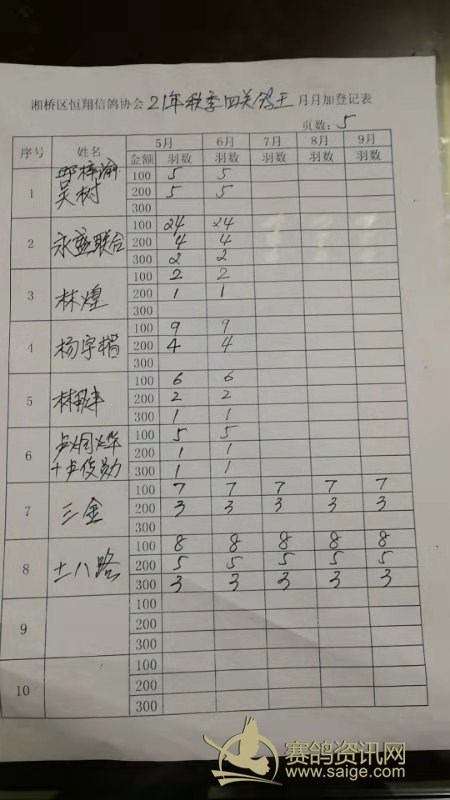 湘桥区恒翔信鸽协会 21年秋季四关鸽王 月月加登记表
页数: 5
序号 姓名 5月 6月 7月 8月 9月
金额 羽数 羽数 羽数 羽数 羽数
1 吴树 100 5 5
200 5 5
300
2 永盛联合 100 24 24
200 4 4
300 2 2
3 林煌 100 2 2
200 1 1
300
4 杨宇 100 9 9
200 4 4
300
5 100 6 6
200 2 2
300 1 1
6 100 5 5
200 1 1
300 1 1
7 三金 100 7 7 7 7 7
200 3 3 3 3 3
300
8 土八路 100 8 8 8 8 8
200 5 5 5 5 5
300 3 3 3 3 3
9 100
200
300
10 100
200
300
赛鸽资讯网
www.saige.com